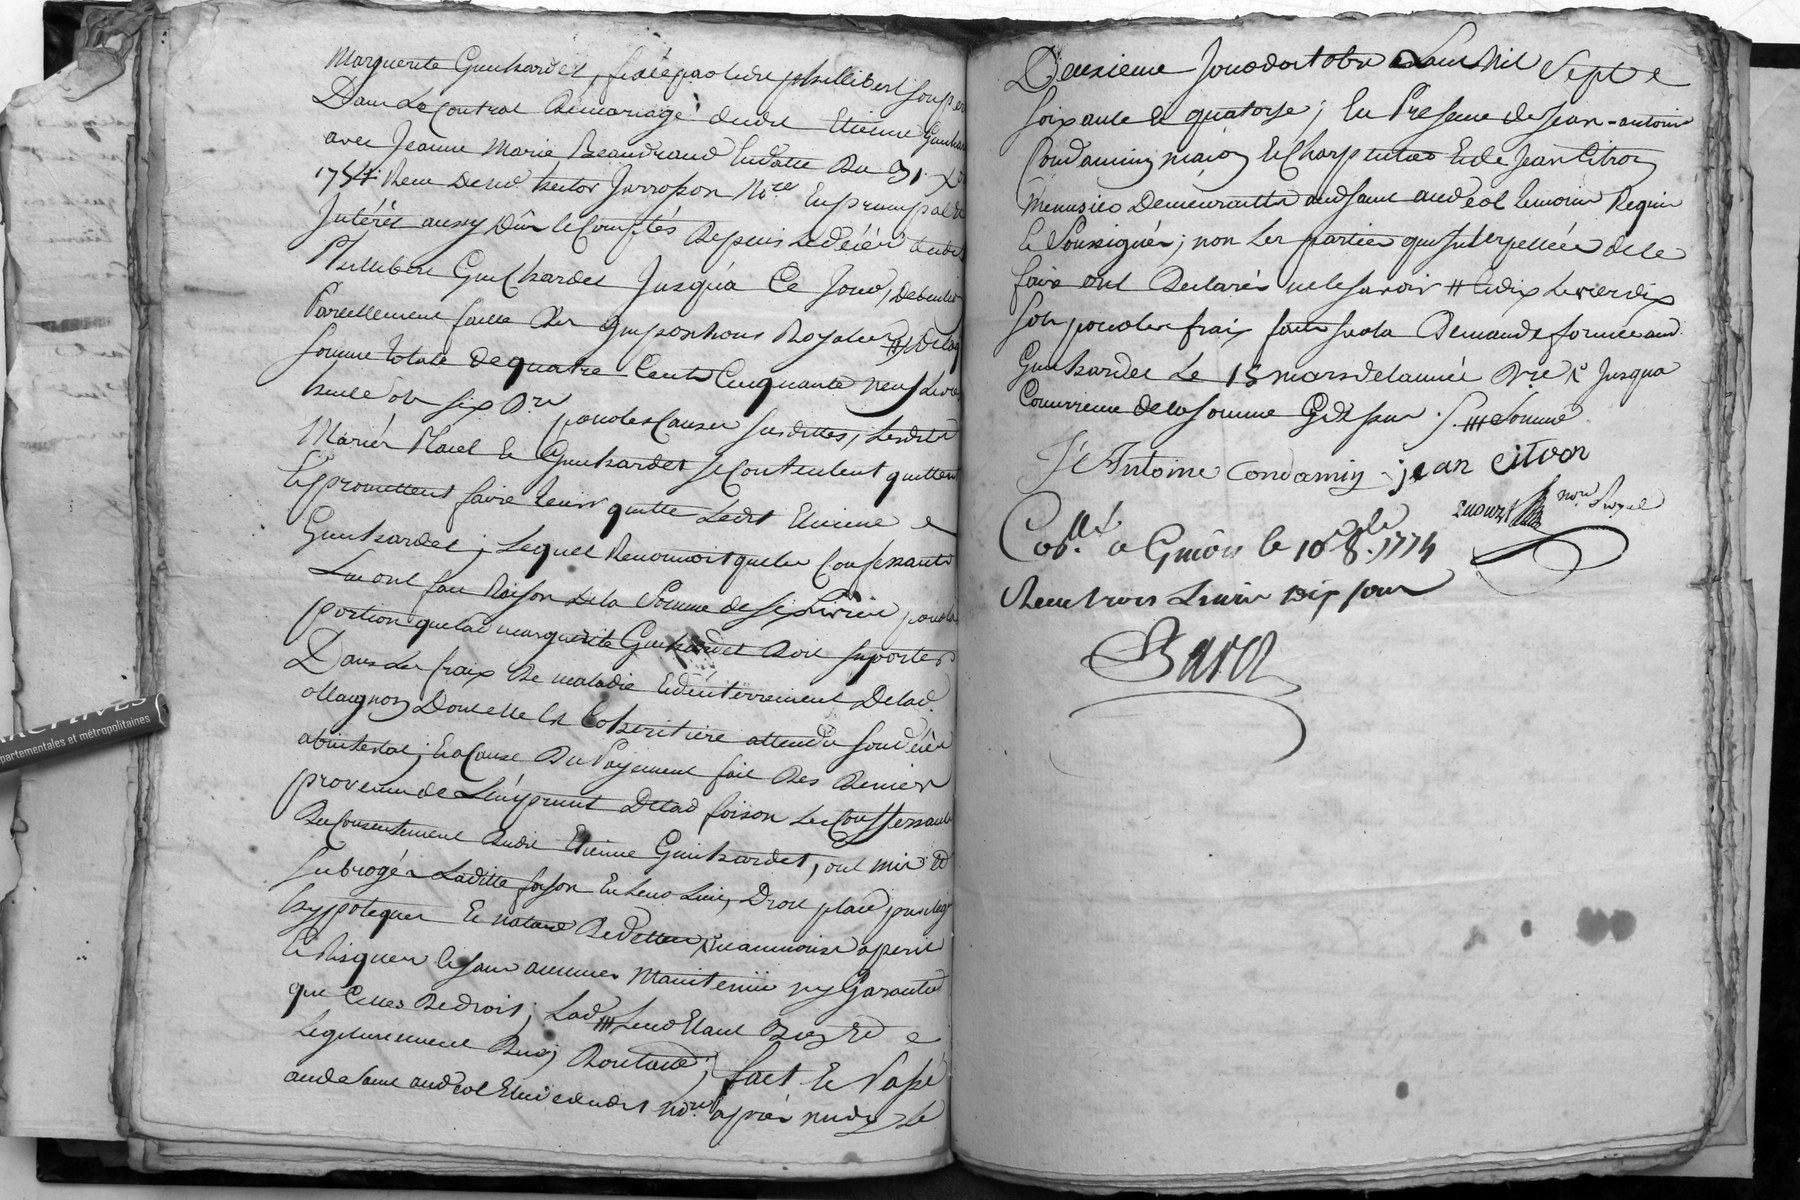 Marguerite Guichardet, fixée par ledit phillibert son père
Dans Le Contrat De mariage dudit Etienne Guichar
avec Jeanne Marie Beaudrand En datte Du 31. X
1754. Receu De me. hector Jarrosson No.re En principal de
Intérêt aussy Dûs et Comptés Depuis Le décés dudit
Phillibert Guichardet Jusqu'à Ce Jour, deduction
Parcellement faitte Des Impositions Royales # De laq
somme totale de quatre Cents Cinquante neuf Livre
huit sols six D.rs pour les Causes susdittes, Lesdits
Mariés Morel Et Guichardet se Contentent quittent
Et promettent faire tenir quitte Ledit Etienne
Guichardet ; Lequel Reconnoit que les Confessants
Lui ont fait Raison De la Somme de six Livres pour la
portion que lad. marguerite Guichardet Doit suporter
Dans Les fraix De maladie Et d'enterrement De lad.
ollagnon Dont elle Est Coheritiere attendu son décés
abintestat ; Et a Cause Du Payement fait Des Deniers
provenu de L'emprunt De lad foison Les Confessants
Du Consentement Dudit Etienne Guichardet, ont mis et
subrogés Laditte foison En Leur Lieu, Droit place privileg
hypoteques Et nature De dettes, neanmoins a peril
Et Risques Et sans aucunes Maintenüe ny Garantie
que Celles De droit ; Lad.
Legitimement ; fait Et Passé
aud. saint andeol Etude dudit No.re après midy Le
Deuxieme Jour d'octobre L'an Mil Sept C
soixante Et quatorze ; En Presence de Jean-antoine
Condamin maçon Et Charpentier Et de Jean Citron
Menusier Demeurants aud saint andeol temoins Requis
Et Soussignés ; non Les parties qui Interpellées de le
faire ont Declarés ne le savoir # Et dix Livres dix
sols pour les frais faits sur la Demande formée aud.
Guichardet Le 15 mars de l'année D.re & Jusqua
Concurrence de la somme Cy dessus
J.e Antoine Condamin jean citron
no.re Royal
Co.llé a Givors le 10 8.bre 1774
Receu trois Livres Dix sous
Baret
ARCHIVES
départementales et métropolitaines